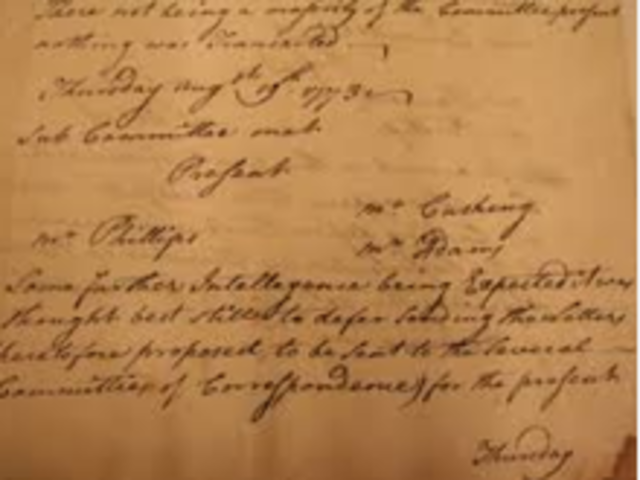 There not being a majority of the Committee present
nothing was Transacted
Thursday Augst. 19th 1773
Sub Committee met
Present
Mr Cushing
Mr Phillips
Mr Adams
Some further Intellegence being Expected it was
thought best still to defer sending the Letters
heretofore proposed to be sent to the Several
Committies of Correspondence for the present
Thursday